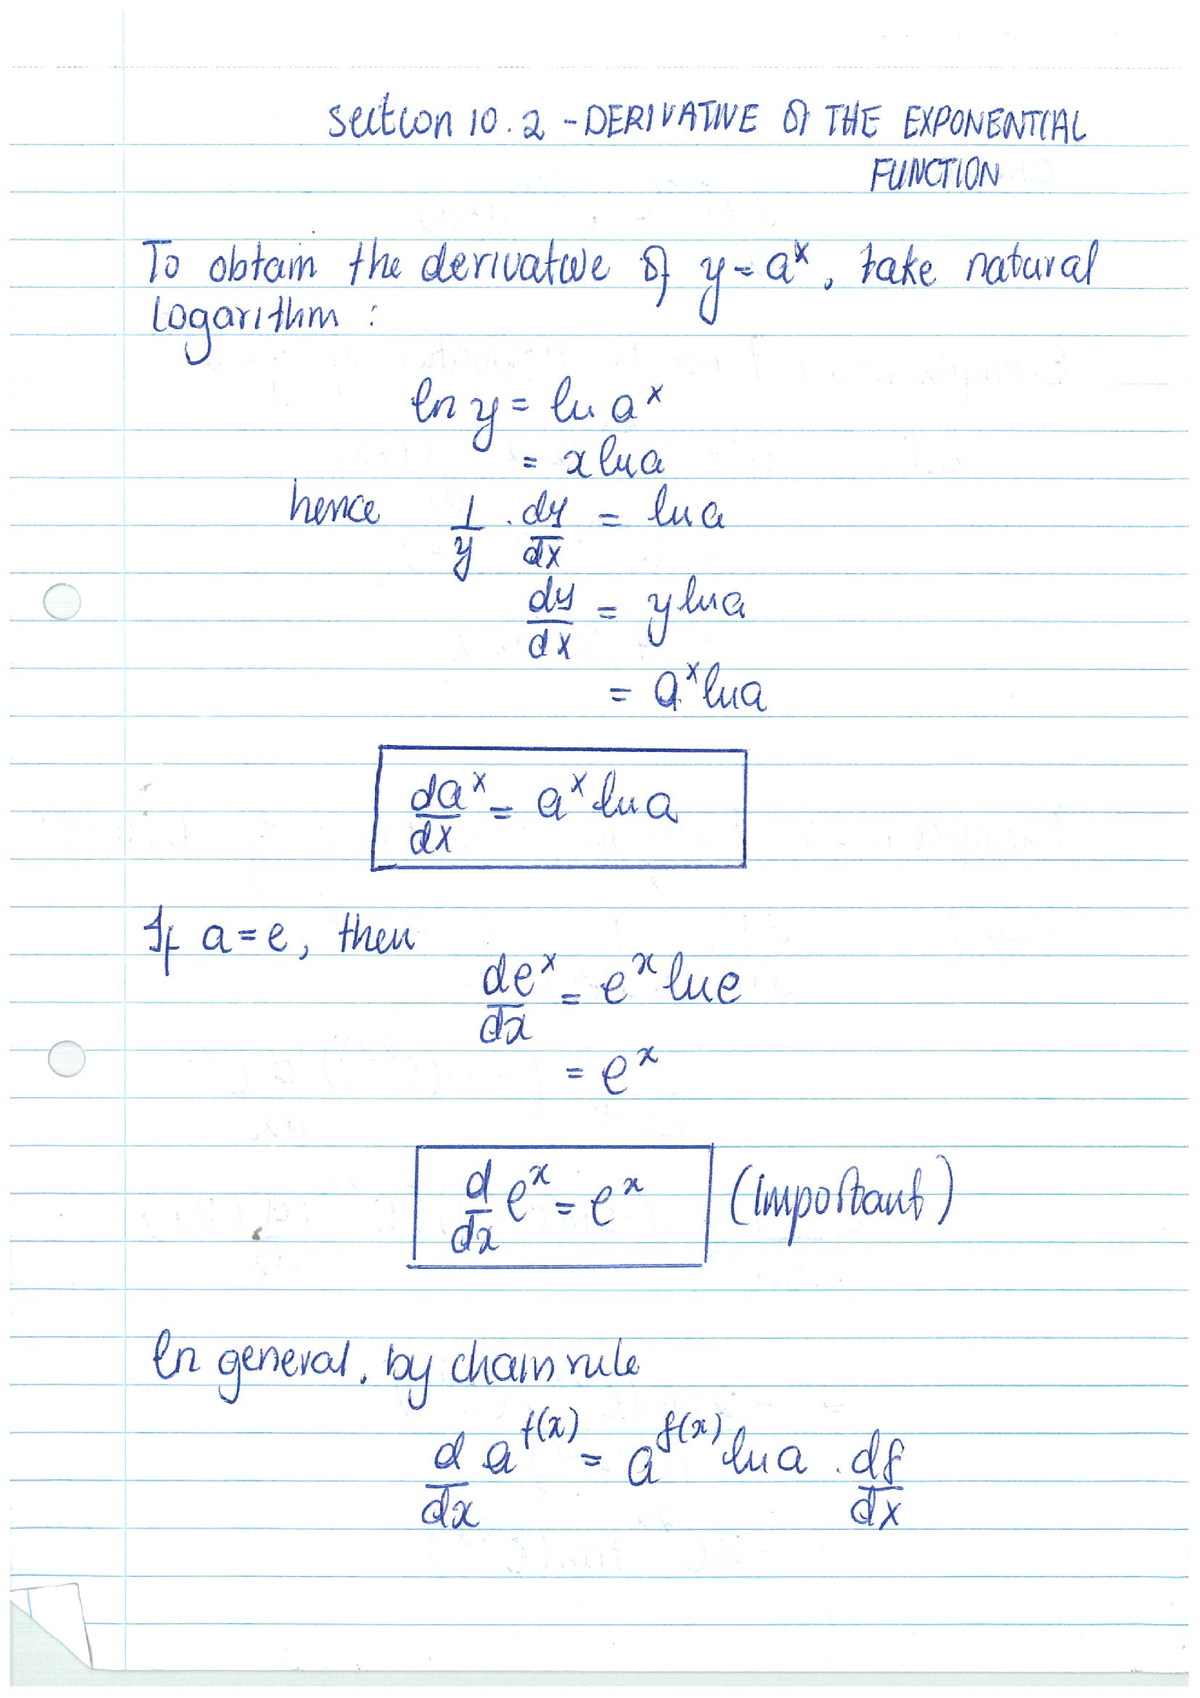 Section 10.2 - DERIVATIVE Of THE EXPONENTIAL
FUNCTION
To obtain the derivative of y = aˣ, take natural
logarithm :
ln y = ln aˣ
= x ln a
hence 1/y . dy/dx = ln a
dy/dx = y ln a
= aˣ ln a
daˣ/dx = aˣ ln a
If a = e, then
deˣ/dx = eˣ ln e
= eˣ
d/dx eˣ = eˣ (Important)
In general, by chain rule
d/dx a^f(x) = a^f(x) ln a . df/dx